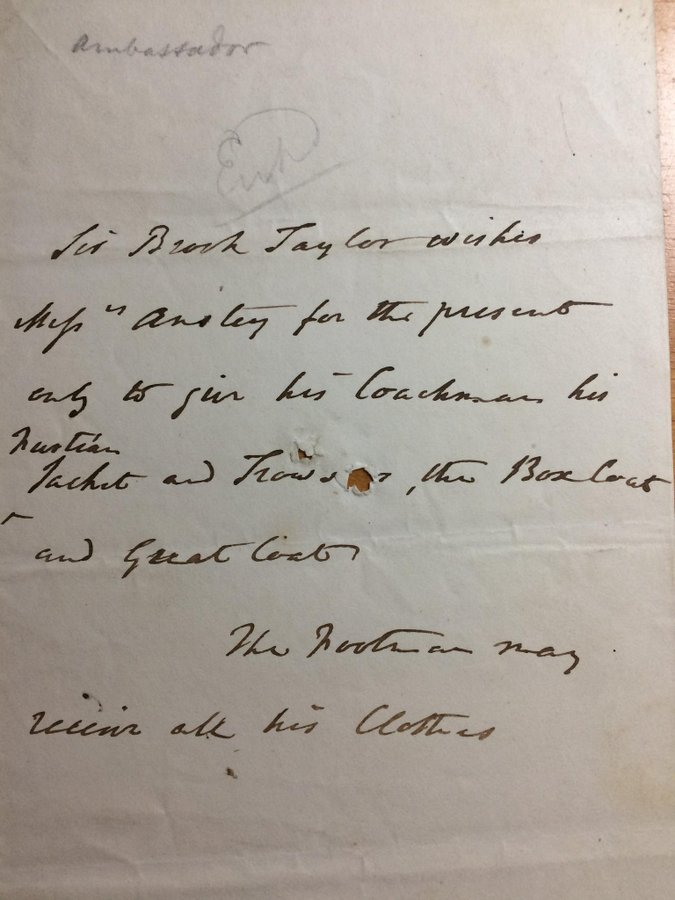 Ambassador
Sir Brook Taylor wishes
Messrs Anstey for the present
only to give his Coachman his
Fustian
Jacket and Trowsers, the Box Coat
and Great Coat
The Footman may
receive all his Clothes